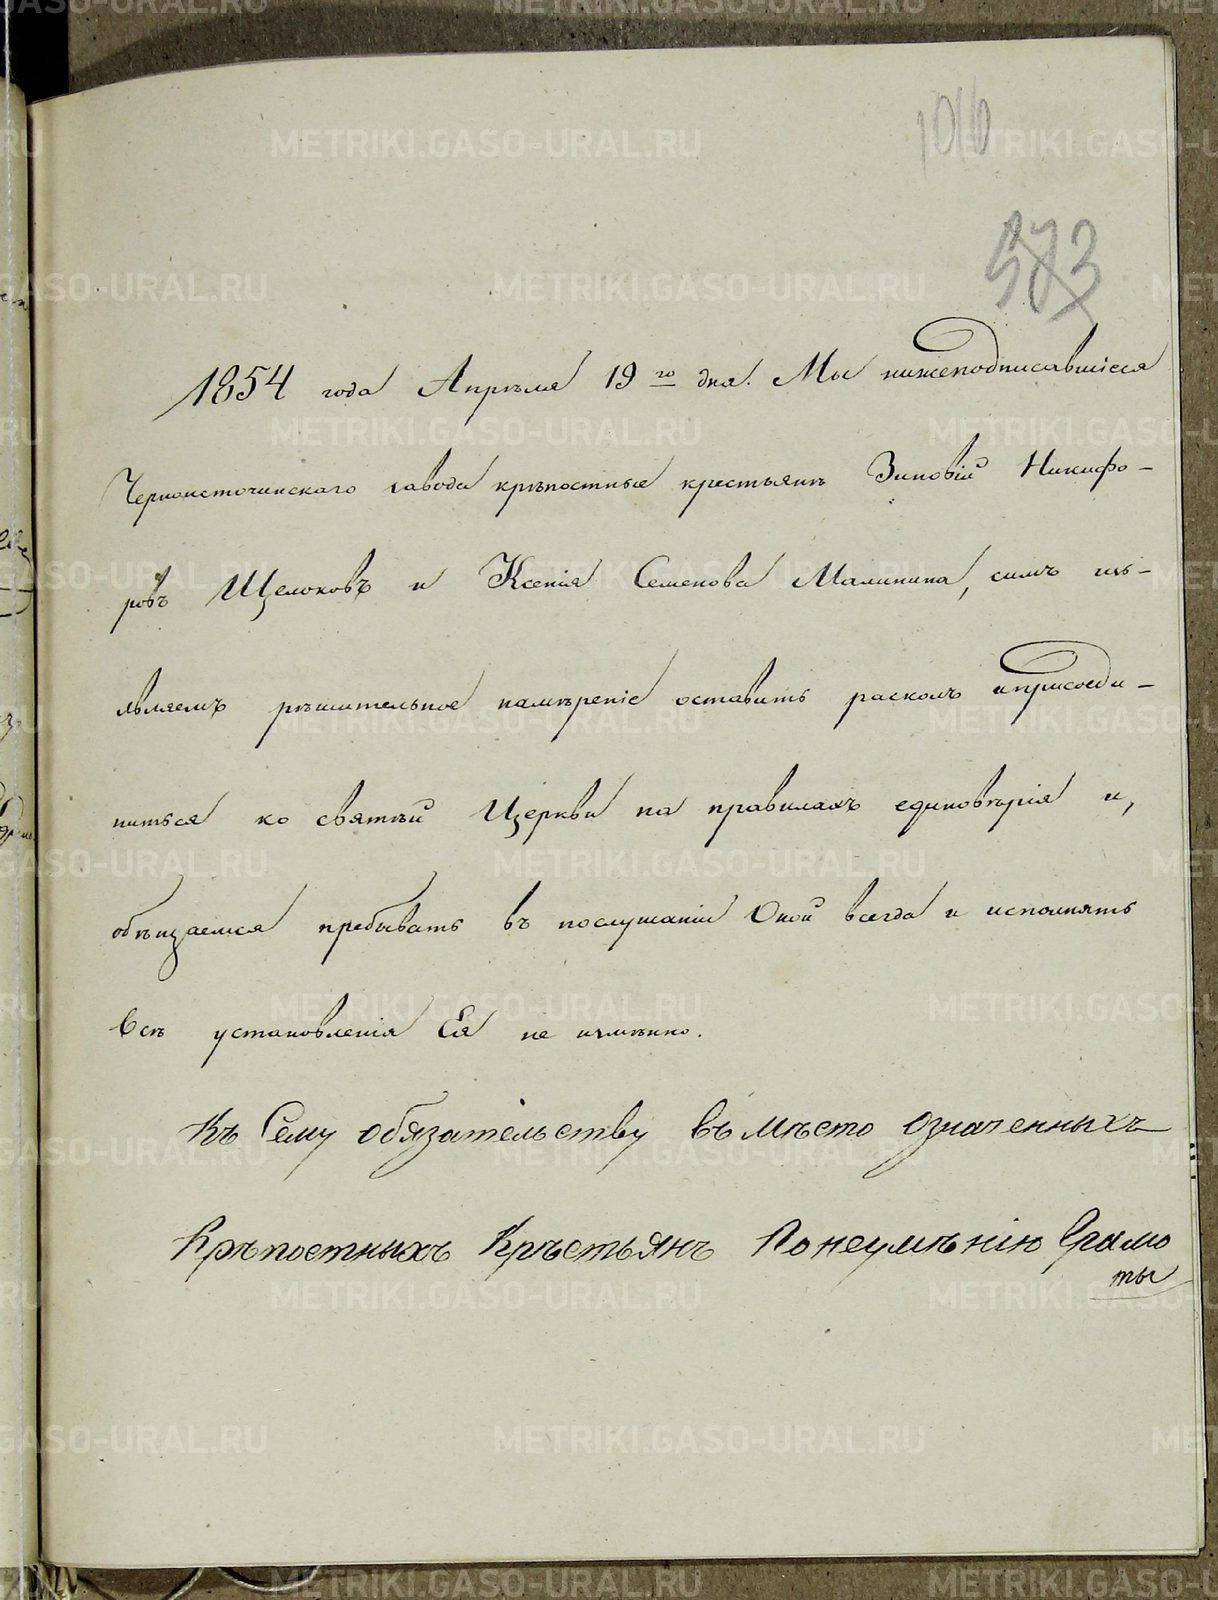 1016
573
1854 года Апрѣля 19го дня. Мы нижеподписавшіеся
Черноисточинскаго завода крѣпостные крестьянѣ Зиновій Никифо-
ровъ Щелоковъ и Ксенія Семенова Малинина, симъ изъ-
являемъ рѣшительное намѣреніе оставить расколъ и присоеди-
ниться ко святѣй Церкви на правилахъ единовѣрія и,
обѣщаемся пребывать въ послушаніи Оной всегда и исполнять
всѣ установленія Ея не измѣнно.
Къ Сему обязательству въ мѣсто означенныхъ
Крѣпостныхъ Крѣстьянъ По неумѣнію Грамо
ты